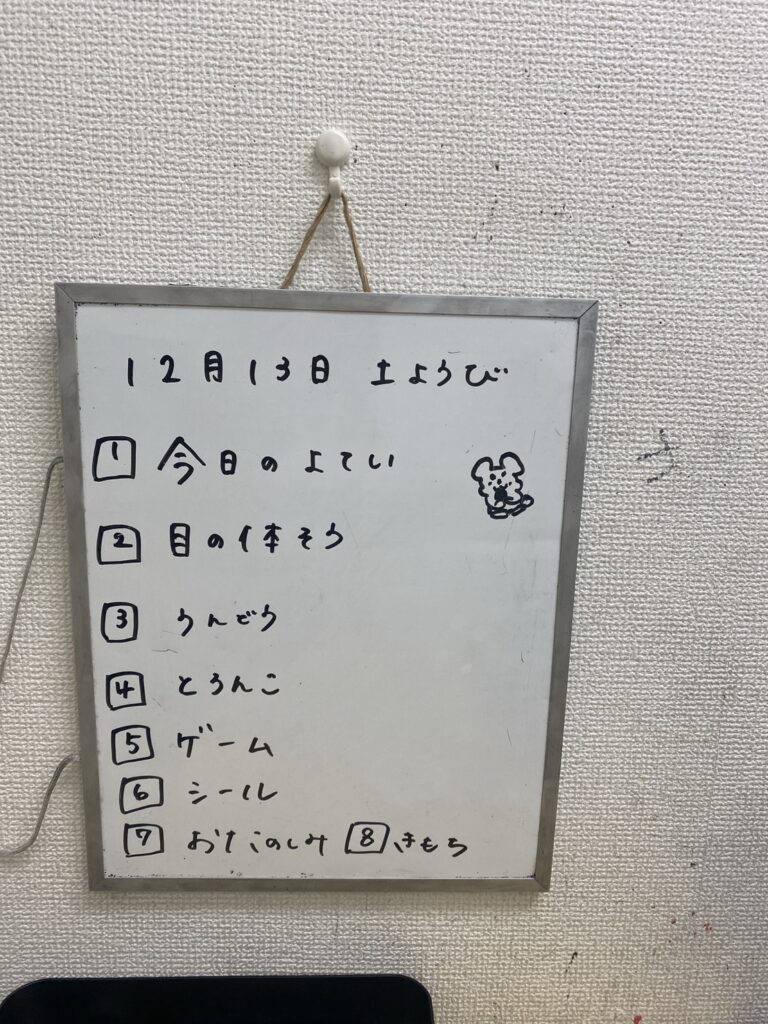 12月13日 土ようび
1 今日のよてい
2 目の体そう
3 うんどう
4 とろんこ
5 ゲーム
6 シール
7 おたのしみ 8 きもち